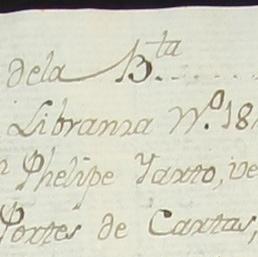 dela B.ta
Libranza N.º 18
n Phelipe Yarto, ve
Portes de Cartas,